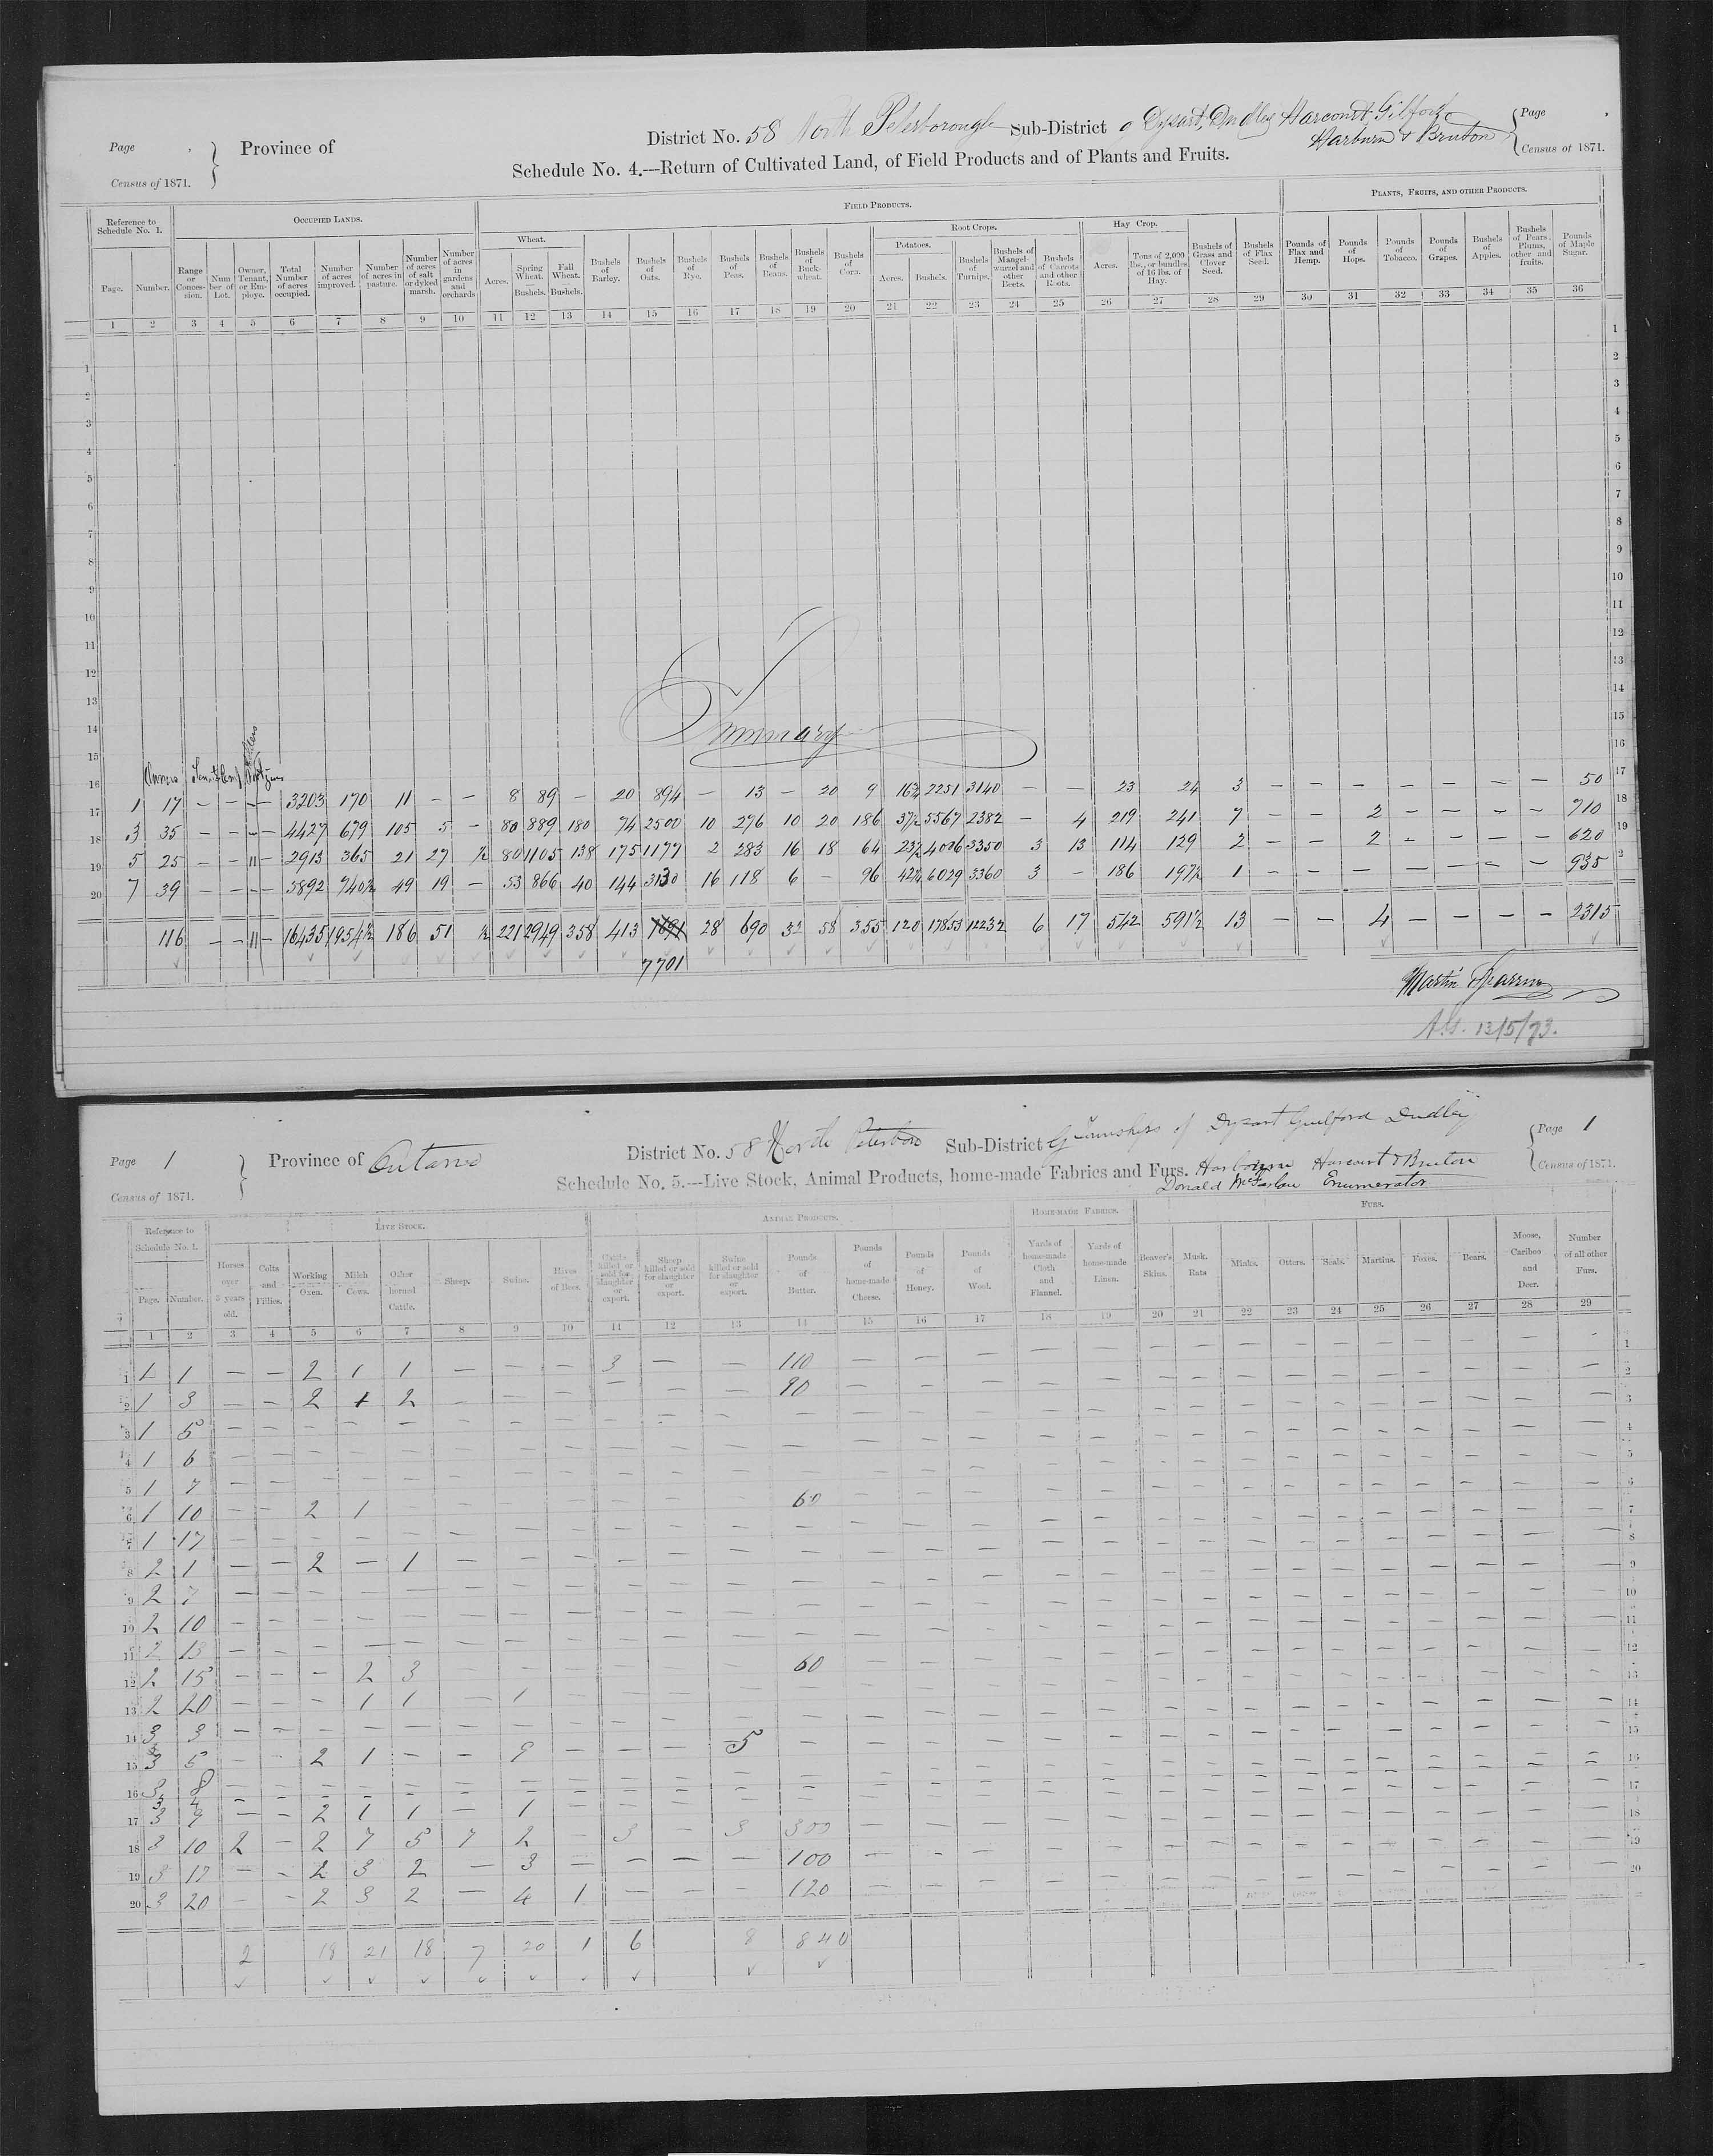 Page
Census of 1871.
Province of
District No. 58 North Peterborough Sub-District g Dysart, Dudley Harcourt Gilford
Harburn & Bruton
Page
Census of 1871.
Schedule No. 4.—Return of Cultivated Land, of Field Products and of Plants and Fruits.
Reference to Schedule No. 1. | Occupied Lands. | Field Products. | Plants, Fruits, and other Products.
Wheat. | Root Crops. | Potatoes. | Hay Crop.
Page. | Number. | Range or Concession. | Number of Lot. | Owner, Tenant, or Employe. | Total Number of acres occupied. | Number of acres improved. | Number of acres in pasture. | Number of acres of salt or dyked marsh. | Number of acres in gardens and orchards | Acres. | Spring Wheat.—Bushels. | Fall Wheat.—Bushels. | Bushels of Barley. | Bushels of Oats. | Bushels of Rye. | Bushels of Peas. | Bushels of Beans. | Bushels of Buckwheat. | Bushels of Corn. | Acres. | Bushels. | Bushels of Turnips. | Bushels of Mangel-wurzel and other Beets. | Bushels of Carrots and other Roots. | Acres. | Tons of 2,000 lbs., or bundles of 16 lbs. of Hay. | Bushels of Grass and Clover Seed. | Bushels of Flax Seed. | Pounds of Flax and Hemp. | Pounds of Hops. | Pounds of Tobacco. | Pounds of Grapes. | Bushels of Apples. | Bushels of Pears, Plums, other and fruits. | Pounds of Maple Sugar.
1 2 3 4 5 6 7 8 9 10 11 12 13 14 15 16 17 18 19 20 21 22 23 24 25 26 27 28 29 30 31 32 33 34 35 36
Summary
Owners
1 17 – – – 3203 170 11 – – 8 89 – 20 894 – 13 – 20 9 16¾ 2251 3140 – – 23 24 3 – – – – – – – 50
3 35 – – – 4427 679 105 5 – 80 889 180 74 2500 10 276 10 20 186 37½ 5567 2382 – 4 219 241 7 – – – 2 – – – 710
5 25 – – 11 – 2913 365 21 27 ½ 80 1105 138 175 1177 2 283 16 18 64 23½ 4006 3350 3 13 114 129 2 – – – 2 – – – 620
7 39 – – – 5892 740½ 49 19 – 53 866 40 144 3130 16 118 6 – 96 42¼ 6029 3360 3 – 186 197½ 1 – – – – – – – 935
116 – – 11 – 16435 1954½ 186 51 ½ 221 2949 358 413 28 690 32 58 355 120 17853 12232 6 17 542 591½ 13 – – 4 – – – – 2315
7701
Martin
13/5/73.
Page 1
Census of 1871.
Province of Ontario
District No. 58 North Peterboro Sub-District G Townships of Dysart Guilford Dudley
Schedule No. 5.—Live Stock, Animal Products, home-made Fabrics and Furs. Harbourn Harcourt & Bruton
Donald McFarlan Enumerator
Page 1
Census of 1871.
Reference to Schedule No. 1. | Live Stock. | Animal Products. | Home-made Fabrics. | Furs.
Page. | Number. | Horses over 3 years old. | Colts and Fillies. | Working Oxen. | Milch Cows. | Other horned Cattle. | Sheep. | Swine. | Hives of Bees. | Cattle killed or sold for slaughter or export. | Sheep killed or sold for slaughter or export. | Swine killed or sold for slaughter or export. | Pounds of Butter. | Pounds of home-made Cheese. | Pounds of Honey. | Pounds of Wool. | Yards of home-made Cloth and Flannel. | Yards of home-made Linen. | Beaver's Skins. | Musk Rats | Minks. | Otters. | Seals. | Martins. | Foxes. | Bears. | Moose, Cariboo and Deer. | Number of all other Furs.
1 2 3 4 5 6 7 8 9 10 11 12 13 14 15 16 17 18 19 20 21 22 23 24 25 26 27 28 29
1 1 1 – – 2 1 1 – – – 3 – – 110
2 1 3 – – 2 1 2 – – – – – – 90
3 1 5
4 1 6
5 1 7
6 1 10 – – 2 1 – – – – – – – 60
7 1 17
8 2 1 – – 2 – 1
9 2 7
10 2 10
11 2 13
12 2 15 – – – 2 3 – – – – – – 60
13 2 20 – – – 1 1 – 1
14 3 3
15 3 5 – – 2 1 – – 9 – – – 5
16 3 8
3 4
17 3 9 – – 2 1 1 – 1
18 3 10 2 – 2 7 5 7 2 – 3 – 3 300
19 3 17 – – 2 3 2 – 3 – – – – 100
20 3 20 – – 2 3 2 – 4 1 – – – 120
2 18 21 18 7 20 1 6 8 840